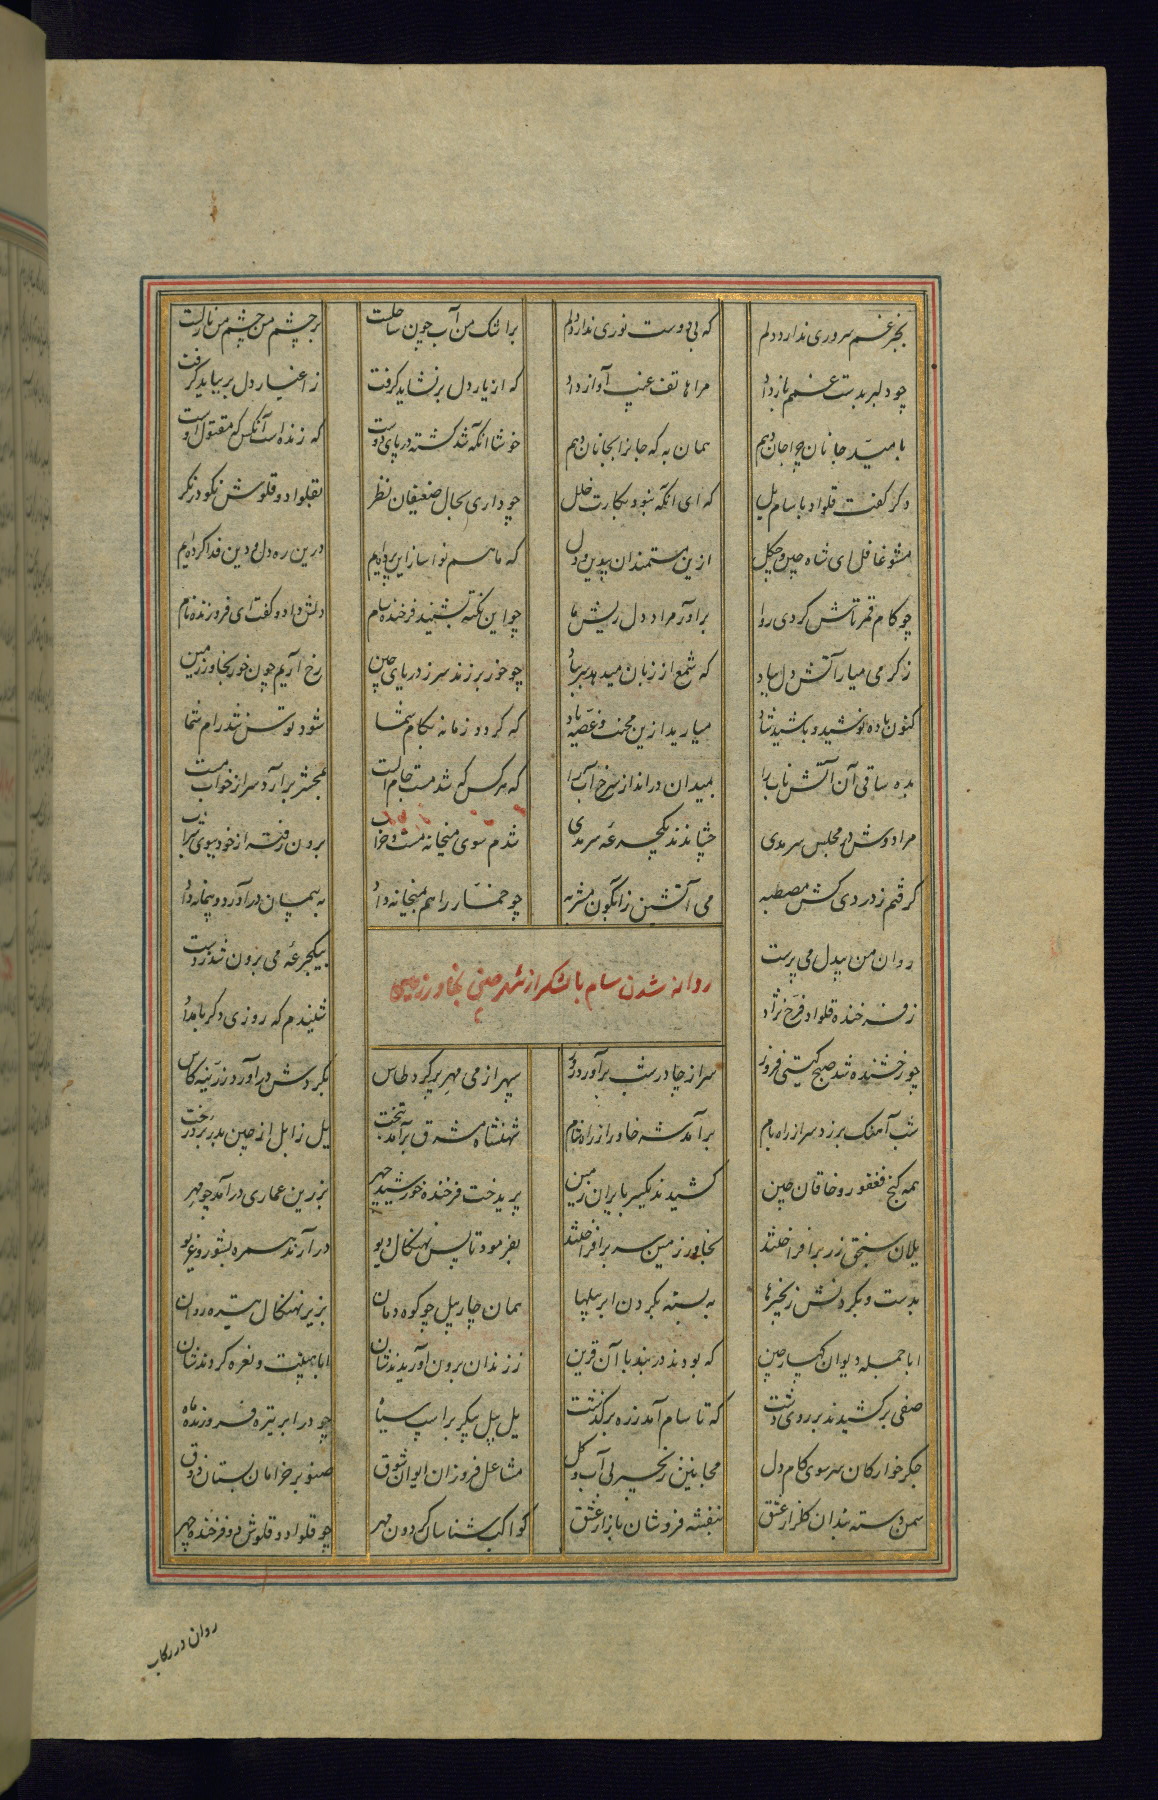 بجز غم سروری ندارد دلم که بی دوست نوری ندارد دلم بر اشک من آب جوین ساحلست بر چشم من چشم من نازلست
چو دلبر بدست غمم باز داد مرا هاتف غیب آواز داد که از یار دل بر نشاید گرفت ز اغیار دل بر بباید گرفت
بامید جانان چرا جان دهم همان به که جانرا بجانان دهم خوشا آنکه شد کشته در پای دوست که زنده است آنکس که مقتول اوست
دگر گفت قلواد با سام یل که ای آنکه نبود بکارت خلل چو داری بحال ضعیفان نظر بقلواد و قلوش نکو در نگر
مشو غافل ای شاه چین و چگل ازین مستمندان بیدین و دل که ما هم نوا ساز این پرده‌ایم درین ره دل و دین فدا کرده‌ایم
چو کام قمرتاش کردی روا برآور مراد دل ریش ما چو این نکته بشنید فرخنده سام دلش داد و گفت ای فروزنده نام
ز گرمی میار آتش دل بباد که شمع از زبان میدهد سر بباد چو خور بر زند سر ز دریای چین رخ آریم چون خور بخاور زمین
کنون باده نوشید و باشید شاد میارید ازین محنت و غصه یاد که گردد زمانه بکام شما شود توسن تند رام شما
بده ساقی آن آتش ناب را بمیدان در انداز سرخ آب را که هر کس که شد مست جام الست بمحشر برآرد سر از خواب مست
مرا دوش در مجلس سرمدی چشاندند یکجرعه سرمدی شدم سوی میخانه مست و خراب برون رفته از خود ببوی شراب
گرفتم ز دردی کش مصطبه می آتشین زآبگون مشربه چو خمار را هم بمیخانه داد به پیمان درآورد و پیمانه داد
روان من بیدل می پرست بیکجرعه می برون شد ز دست
ز فرخنده قلواد فرخ نژاد شنیدم که روزی دگر بامداد
روانه شدن سام با لشکر از شهر چین بخاور زمین
چو رخشنده شد صبح گیتی فروز سر از چادر شب برآورد روز سپهر از می مهر پر کرد طاس بگردش درآورد زرینه کاس
شب آهنگ برزد سر از راه بام برآمد شه خاور از راه شام شهنشاه مشرق برآمد بتخت یل زابل از چین بدر برد رخت
همه گنج فغفور و خاقان چین کشیدند یکسر بایران زمین پریدخت فرخنده خورشید چهر بزرین عماری درآمد چو مهر
یلان سنجق زر برافراختند بخاور زمین سر برافراختند بفرمود تا پس نهنکال دیو درآرند همره بشور و غریو
بدست و بگردنش زنجیرها به بسته بگردن ابر پیلها همان چار پیل چو کوه دمان بزیر نهنکال تیره روان
ابا جمله دیوان کهسار چین که بودند در بند با آن قرین ز زندان برون آوریدندشان ابا هیبت و نعره کردندشان
صفی برکشیدند بر روی دشت که تا سام آمد زره برگذشت یل پیل پیکر بر اسب سیاه چو در ابر تیره فروزنده ماه
جگر خوارکان سر سوی کام دل مجانین زنجیری آب و گل مشاعل فروزان ایوان شوق صنوبر خرامان بستان ذوق
سمن دسته بندان گلزار عشق بنفشه فروشان بازار عشق کواکب شناسان گردون مهر چو قلواد و قلوش دو فرخنده چهر
روان در رکاب